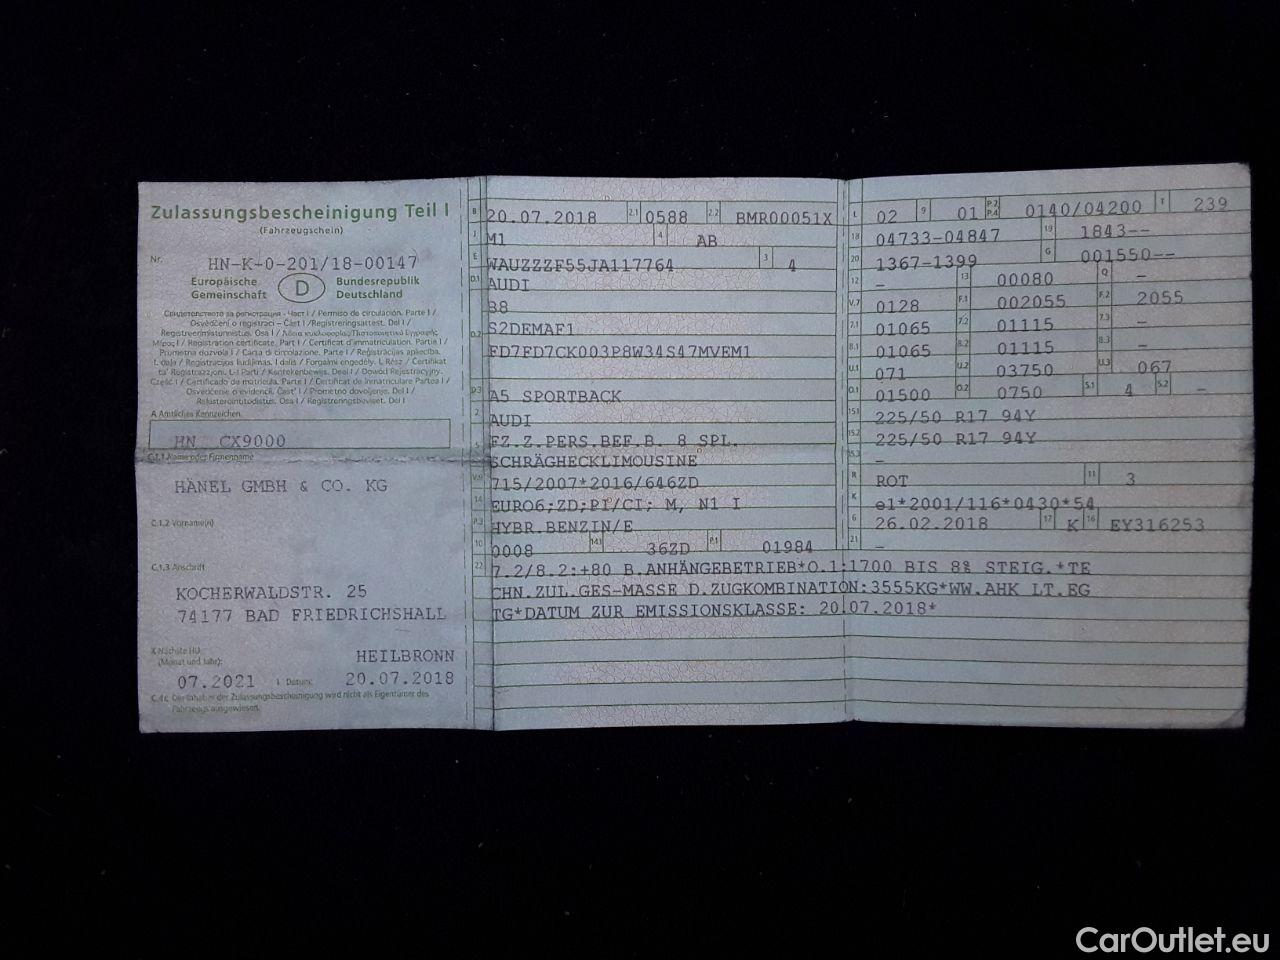 Zulassungsbescheinigung Teil I
(Fahrzeugschein)
Nr. HN-K-0-201/18-00147
Europäische Gemeinschaft D Bundesrepublik Deutschland
Свидетелство за регистрация - Част I / Permiso de circulación. Parte I /
Osvědčení o registraci - Část I / Registreringsattest. Del I /
Μέρος I / Registration certificate. Part I / Certificat d'immatriculation. Partie I /
Prometna dozvola I / Carta di circolazione. Parte I / Reģistrācijas apliecība.
I. daļa / Registracijos liudijimas. I dalis / Forgalmi engedély. I. Rész / Ċertifikat
ta' Reġistrazzjoni. L-I Parti / Kentekenbewijs. Deel I / Dowód Rejestracyjny.
Część I / Certificado de matrícula. Parte I / Certificat de înmatriculare Partea I /
Osvedčenie o evidencii. Časť I / Prometno dovoljenje. Del I /
Rekisteröintitodistus. Osa I / Registreringsbeviset. Del I
A Amtliches Kennzeichen
HN CX9000
C.1.1 Name oder Firmenname
HÄNEL GMBH & CO. KG
C.1.2 Vorname(n)
C.1.3 Anschrift
KOCHERWALDSTR. 25
74177 BAD FRIEDRICHSHALL
X Nächste HU
(Monat und Jahr):
HEILBRONN
07.2021 I Datum: 20.07.2018
C.4c Der Inhaber der Zulassungsbescheinigung wird nicht als Eigentümer des
Fahrzeugs ausgewiesen.
B 20.07.2018 2.1 0588 2.2 BMR00051X
J M1 4 AB
E WAUZZZF55JA117764 3 4
D.1 AUDI
B8
D.2 S2DEMAF1
FD7FD7CK003P8W34S47MVEM1
D.3 A5 SPORTBACK
2 AUDI
5 FZ.Z.PERS.BEF.B. 8 SPL.
SCHRÄGHECKLIMOUSINE
V.9 715/2007*2016/646ZD
14 EURO6;ZD;PI/CI; M, N1 I
P.3 HYBR.BENZIN/E
10 0008 14.1 36ZD P.1 01984
L 02 9 01 P.2 P.4 0140/04200 T 239
18 04733-04847 19 1843--
20 1367-1399 G 001550--
12 - 13 00080 Q -
V.7 0128 F.1 002055 F.2 2055
7.1 01065 7.2 01115 7.3 -
8.1 01065 8.2 01115 8.3 -
U.1 071 U.2 03750 U.3 067
O.1 01500 O.2 0750 S.1 4 S.2 -
15.1 225/50 R17 94Y
15.2 225/50 R17 94Y
15.3 -
R ROT 11 3
K e1*2001/116*0430*54
6 26.02.2018 17 K 16 EY316253
21 -
22 7.2/8.2:+80 B.ANHÄNGEBETRIEB*O.1:1700 BIS 8% STEIG.*TE
CHN.ZUL.GES-MASSE D.ZUGKOMBINATION:3555KG*WW.AHK LT.EG
TG*DATUM ZUR EMISSIONSKLASSE: 20.07.2018*
CarOutlet.eu